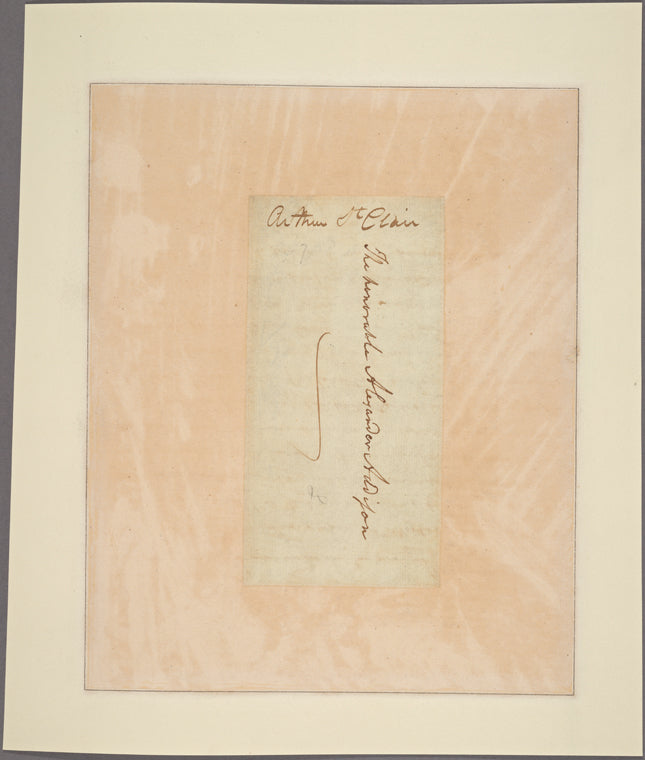 Arthur St Clair
The honorable Alexander Addison